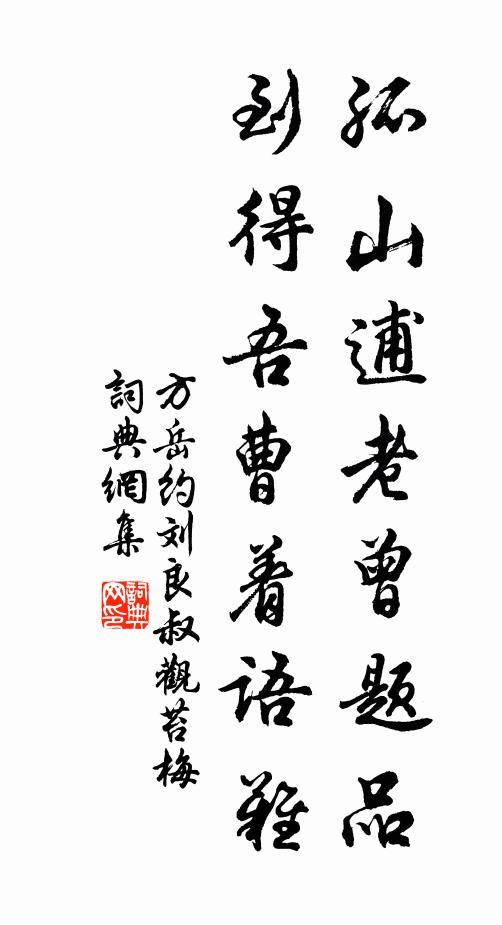 孤山逋老曾题品
到得吾曹着语難
方岳约刘良叔觀苔梅
詞典網集
詞典网印